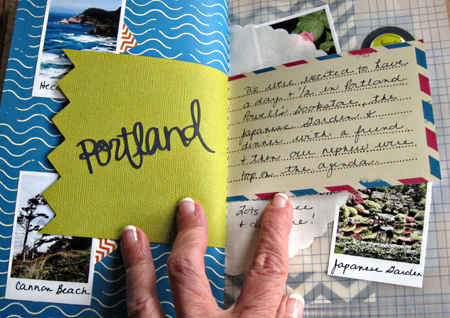 Hec
Portland
Cannon Beach
We were excited to have
a day + 1/2 in Portland
Powell's bookstore, the
Japanese Garden &
dinner with a friend
& then our nephew were
top on the agenda.
Lots
&
Japanese Garden